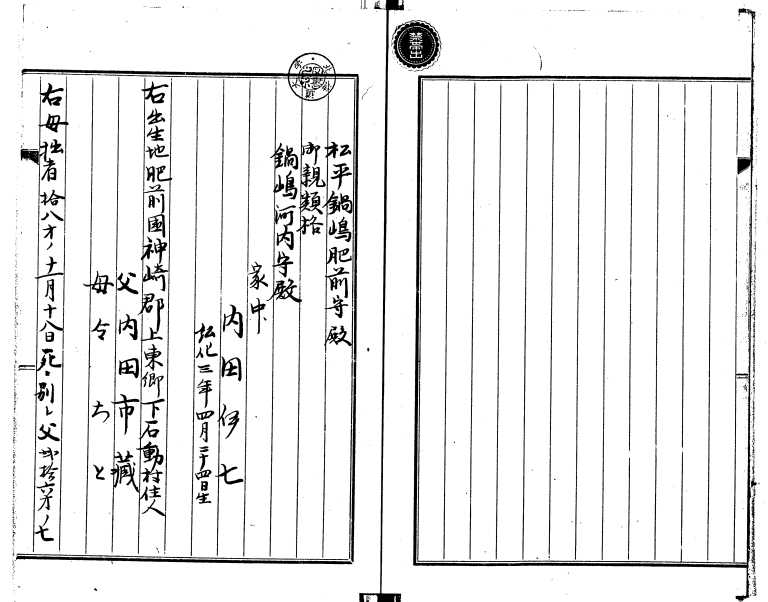 禁帯出
松平鍋嶋肥前守殿
御親類格
鍋嶋河内守殿
家中
内田伊七
弘化三年四月二十四日生
右出生地肥前國神崎郡上東郷下石動村住人
父内田市藏
母令ちと
右母拙者拾八才ノ十一月十八日死ニ別レ父弐拾六才ノ七